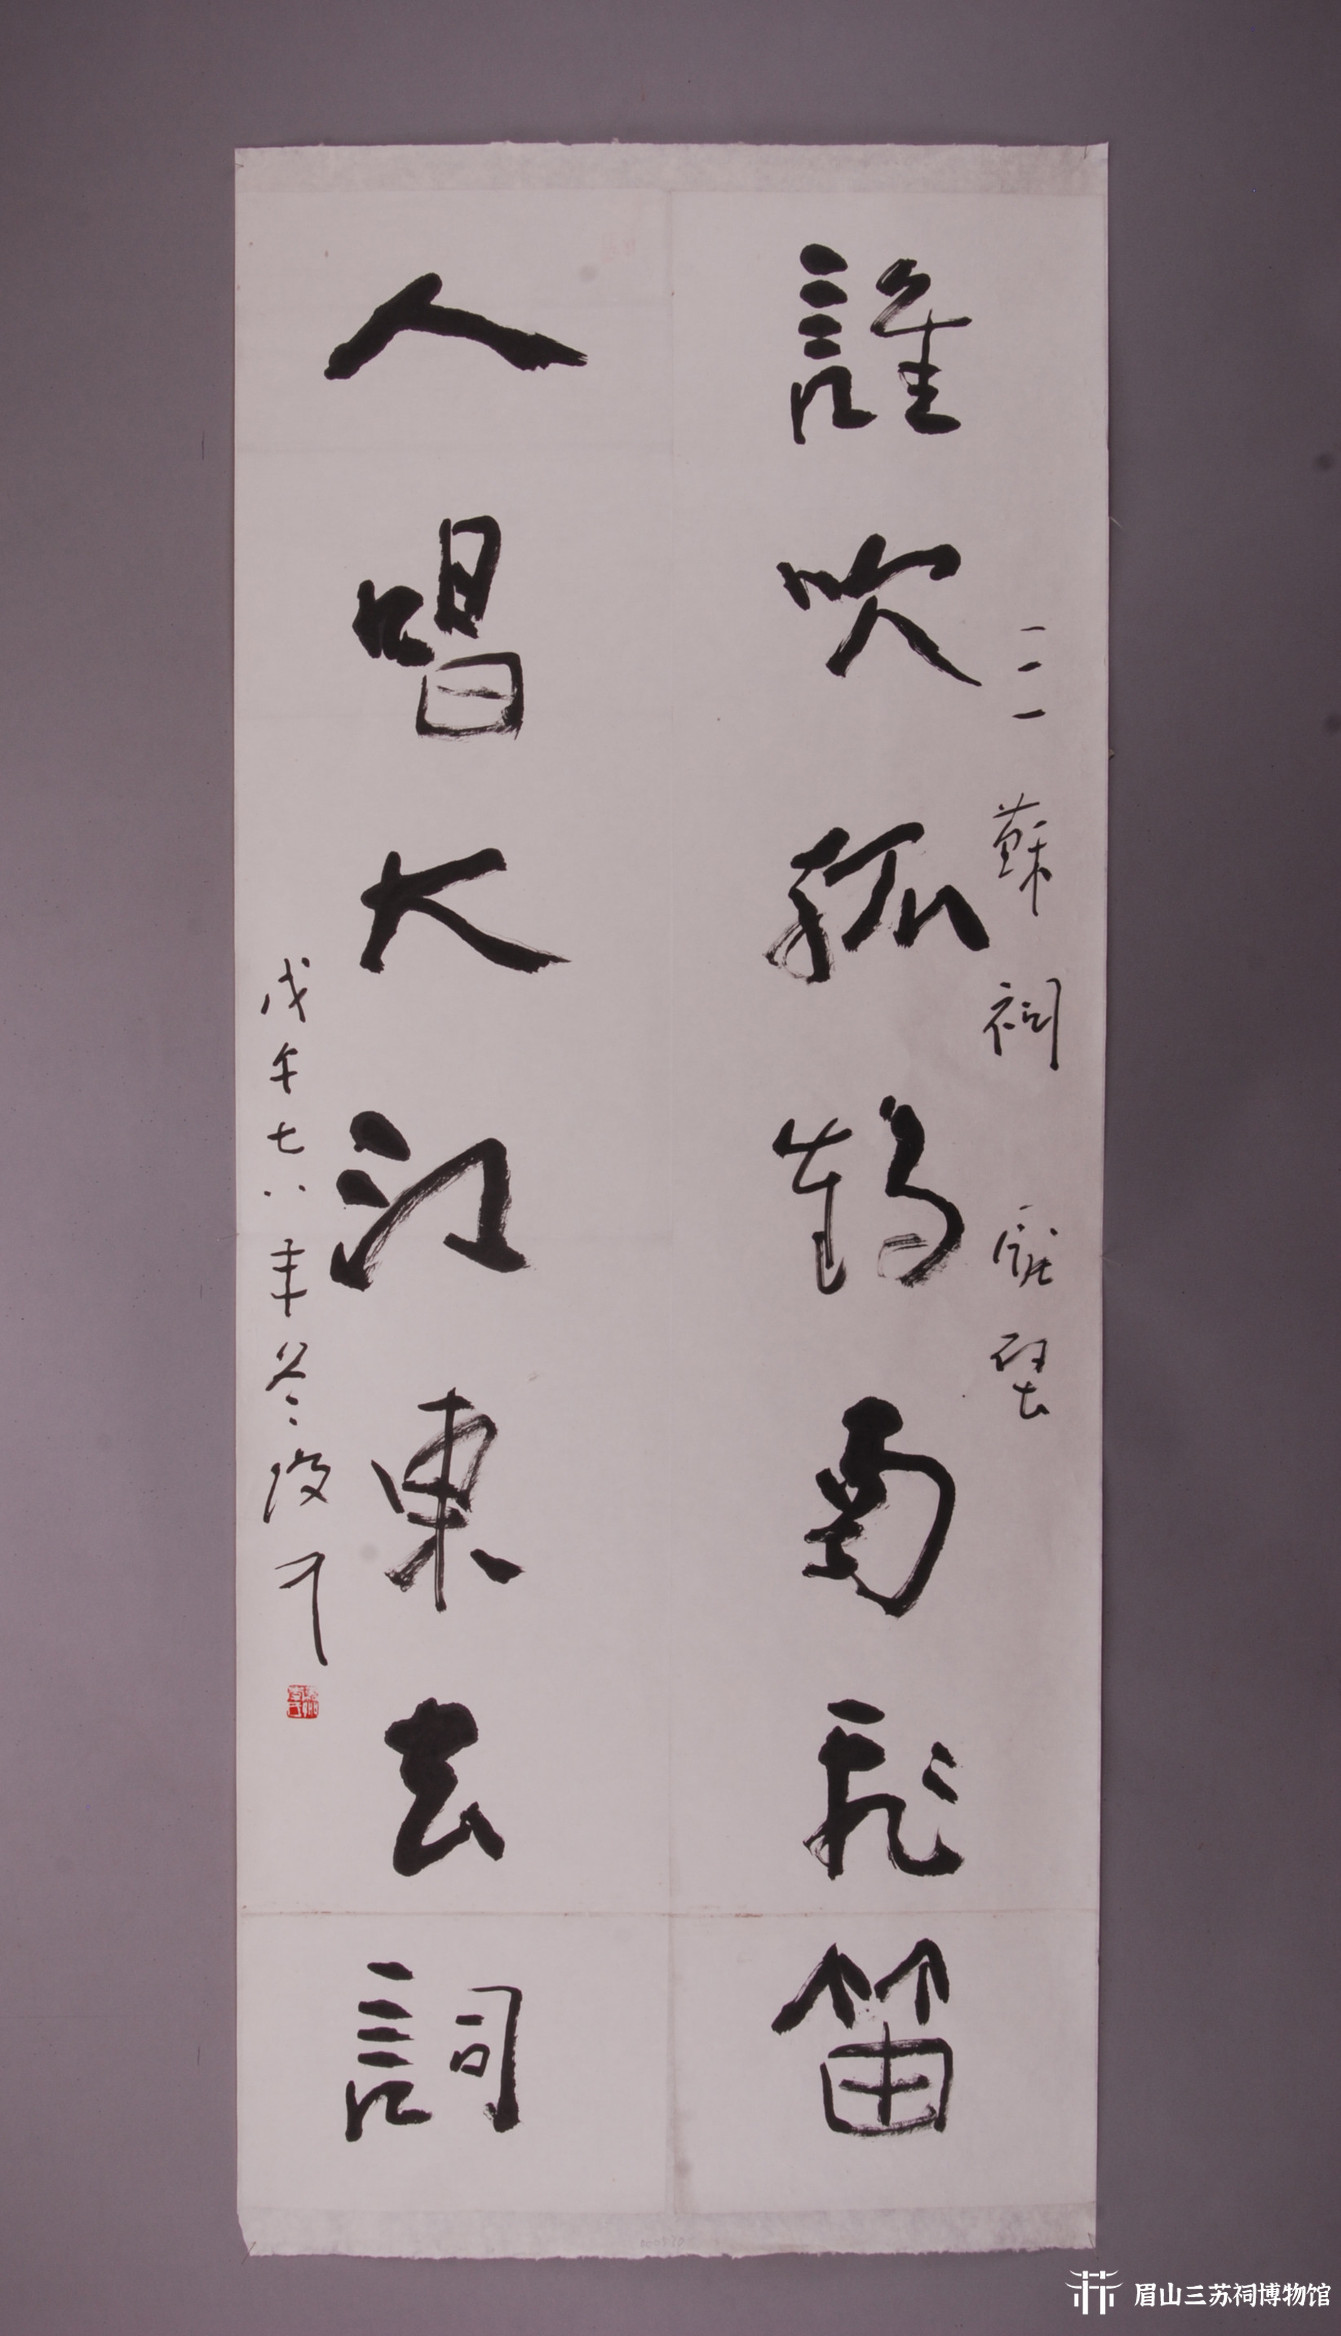 三蘇祠
誰吹孤鶴南飛笛
人唱大江東去詞
戊午七八年冬
眉山三苏祠博物馆